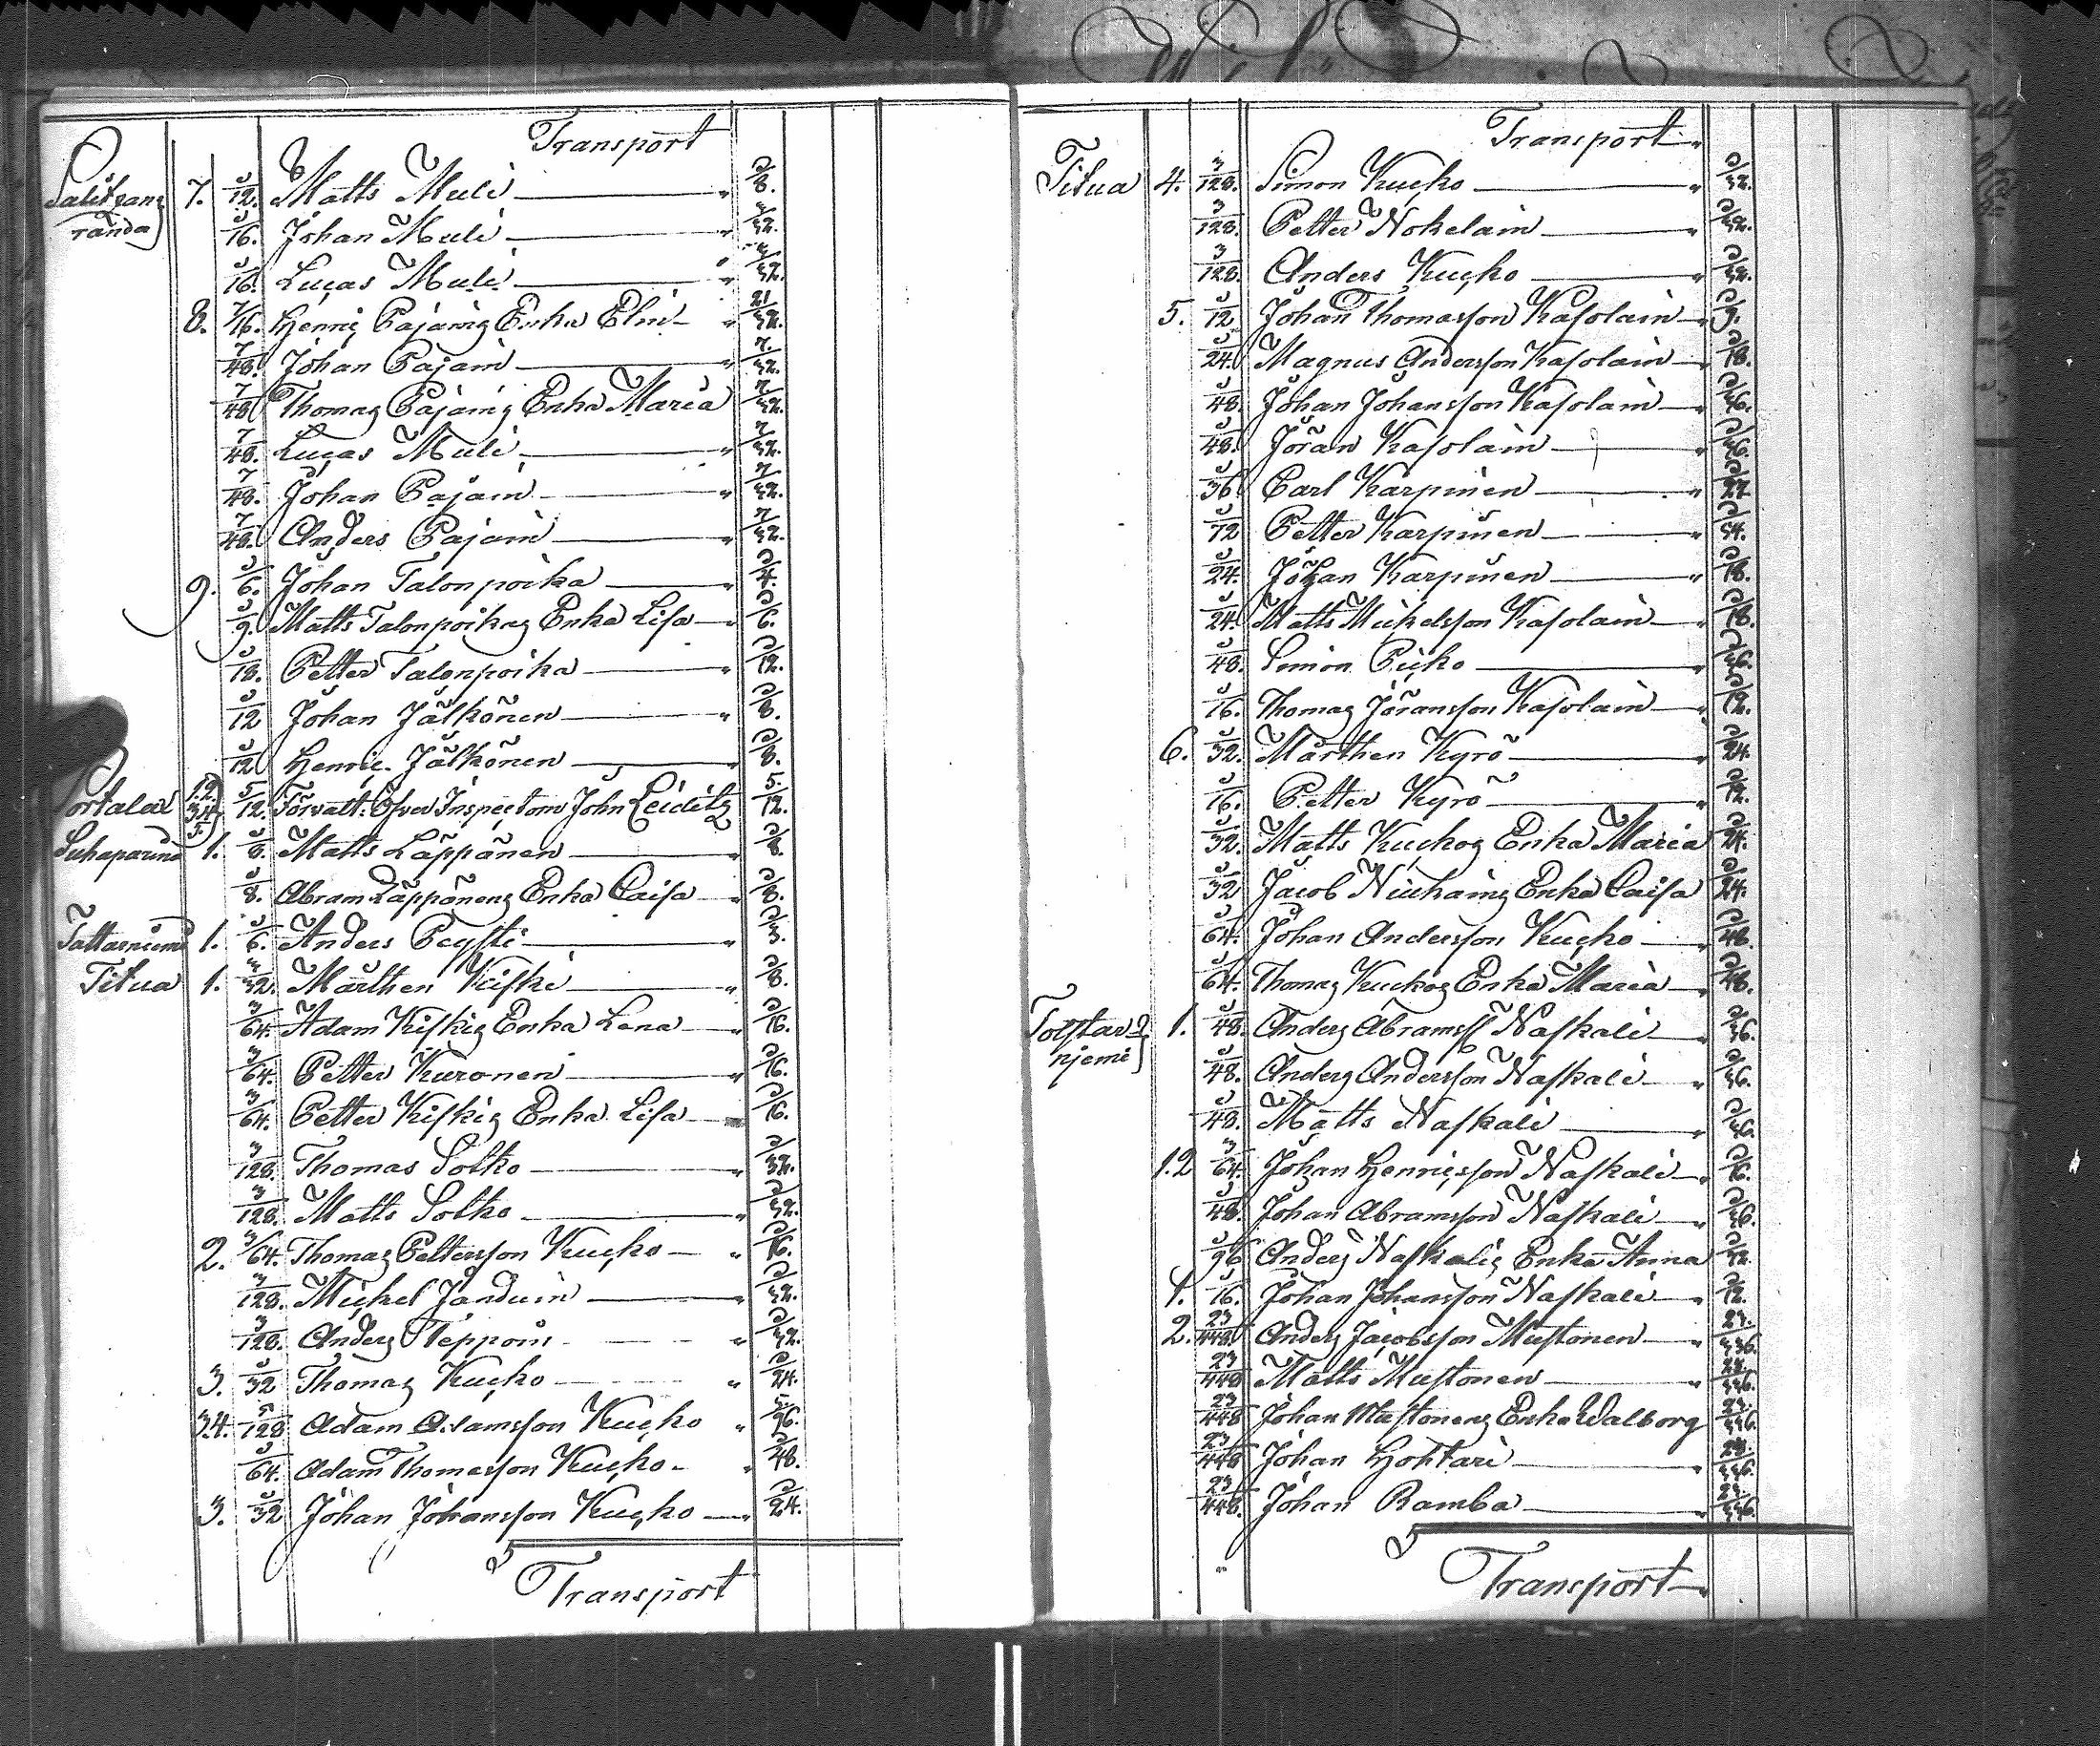 Transport
Salitzan= 7. 1/12. Matts Muli — " 1/8.
randa 1/16. Johan Muli — " 3/32.
1/16. Lucas Muli — " 3/32.
8. 7/16. Henric Pajains Enka Elin — " 21/32.
7/48. Johan Pajain — " 7/32.
7/48 Thomas Pajains Enka Maria 7/32.
7/48. Lucas Muli — " 7/32.
7/48. Johan Pajain — " 7/32.
7/48. Anders Pajain — " 7/32.
9. 1/6. Johan Talonpoika — " 1/4.
1/9. Matts Talonpoikas Enka Lisa — " 1/6.
1/18. Petter Talonpoika — " 1/12.
1/12 Johan Jälkönen — " 1/8.
1/12 Henric Jälkönen — " 1/8.
Portala 1.2. 3.4. 5. 5/12. Förvalt: Öfver Inspectorn John Leiditz 5/12.
Suhaparina 1. 1/8. Matts Läppänen — " 1/8.
1/8. Abram Läppönens Enka Caisa — " 1/8.
Tattarniemi 1. 1/6. Anders Pegsti — " 1/3.
Titua 1. 3/32. Mårthen Kiiski — " 1/8.
3/64. Adam Kiskis Enka Lena — " 1/16.
3/64. Petter Kuronen — " 1/16.
3/64. Petter Kiskis Enka Lisa — 1/16.
3/128. Thomas Sotko — " 1/32.
3/128. Matts Sotko — " 1/32.
2. 3/64. Thomas Pettersson Kucko — " 1/16.
3/128. Mickel Janduin — " 1/32.
3/128. Anders Teppoin — " 1/32.
3. 1/32 Thomas Kucko — " 1/24.
3.4. 5/128 Adam Adamsson Kucko " 5/96.
1/64. Adam Thomasson Kucko — " 1/48.
3. 1/32 Johan Johansson Kucko — " 1/24.
Transport
Transport "
Titua 4. 3/128. Simon Kucko — " 1/32.
3/128. Petter Nokelain — " 1/32.
3/128. Anders Kucko — " 1/32.
5. 1/12 Johan Thomasson Kasolain — " 1/9.
1/24. Magnus Andersson Kasolain — " 1/18.
1/48. Johan Johansson Kasolain — " 1/36.
1/48. Jöran Kasolain — " 1/36.
1/36 Carl Karpinen — " 1/27
1/72 Petter Karpinen — " 1/54.
1/24. Johan Karpinen — " 1/18.
1/24. Matts Mickelsson Kasolain — " 1/18.
1/48. Simon Picko — " 1/36.
1/16. Thomas Jöransson Kasolain — " 1/12.
6. 1/32. Mårthen Kyrö — " 1/24.
1/16. Petter Kyrö — " 1/12.
1/32. Matts Kuckos Enka Maria 1/24.
1/32 Jacob Niuhains Enka Caisa 1/24.
1/64. Johan Andersson Kucko — " 1/48.
1/64. Thomas Kuckos Enka Maria — " 1/48.
Tolstar= 1. 1/48. Anders Abramss: Naskali — " 1/36.
njemi 1/48. Anders Andersson Naskali — " 1/36.
1/48. Matts Naskali — " 1/36.
1.2 3/64. Johan Henricsson Naskali — " 1/16.
1/48. Johan Abramsson Naskali — " 1/36.
1/96 Anders Naskalis Enka Anna 1/72
1. 1/16. Johan Johansson Naskali — " 1/12.
2. 23/448. Anders Jacobsson Mustonen — " 23/336.
23/448 Matts Mustonen — " 23/336.
23/448 Johan Mustonens Enka Walborg 23/336.
23/448 Johan Hohtari — " 23/336.
23/448. Johan Ramba — " 23/336.
Transport "